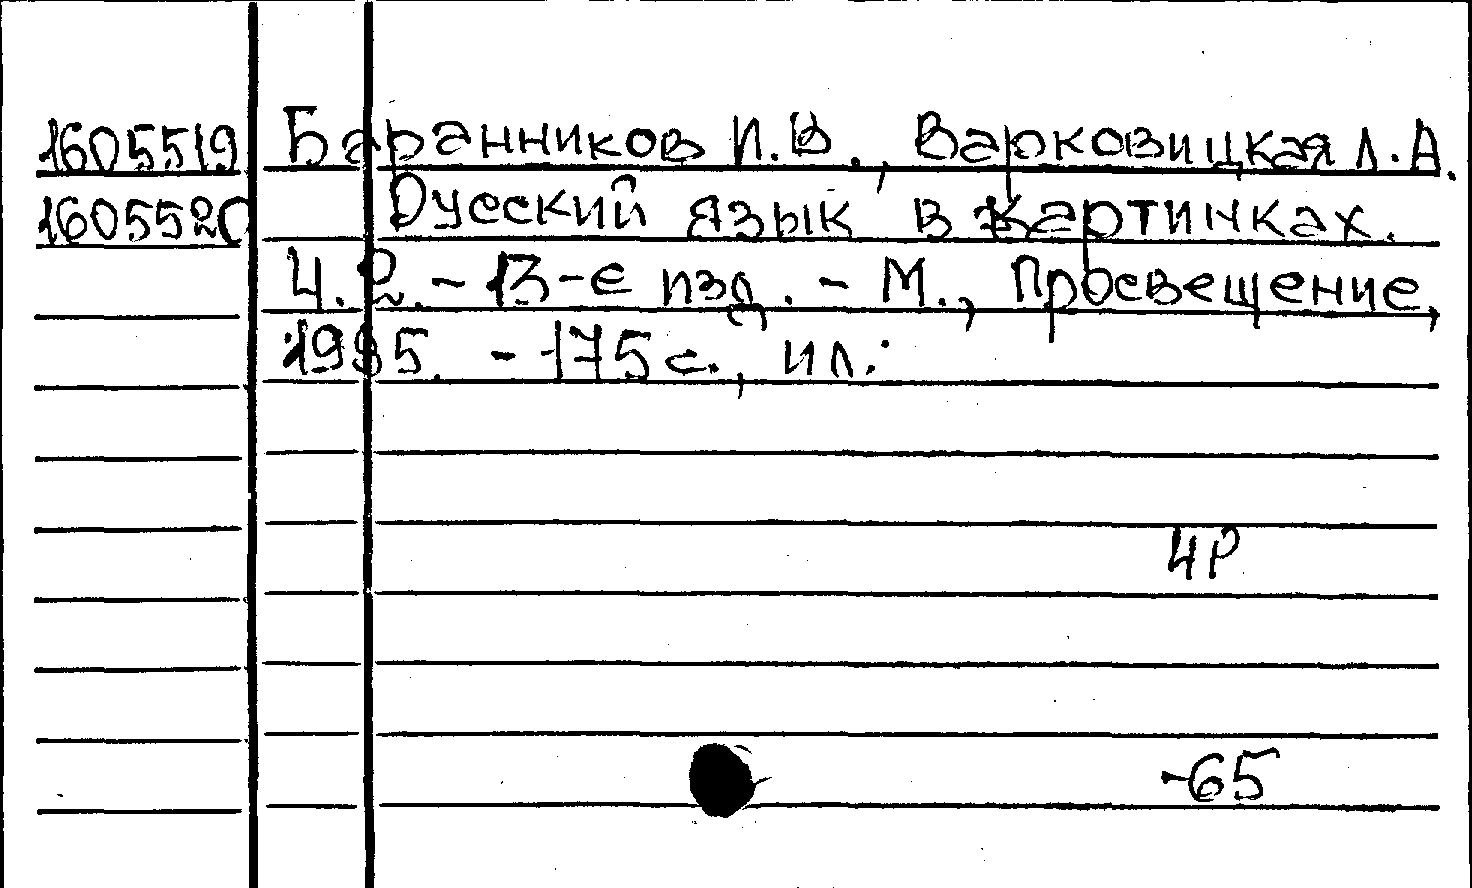 1605519 Баранников И.В., Варковицкая Л.А.
1605520 Русский язык в картинках.
Ч. 2. - 13-е изд. - М., Просвещение,
1985. - 175 с., ил.
4Р
-65